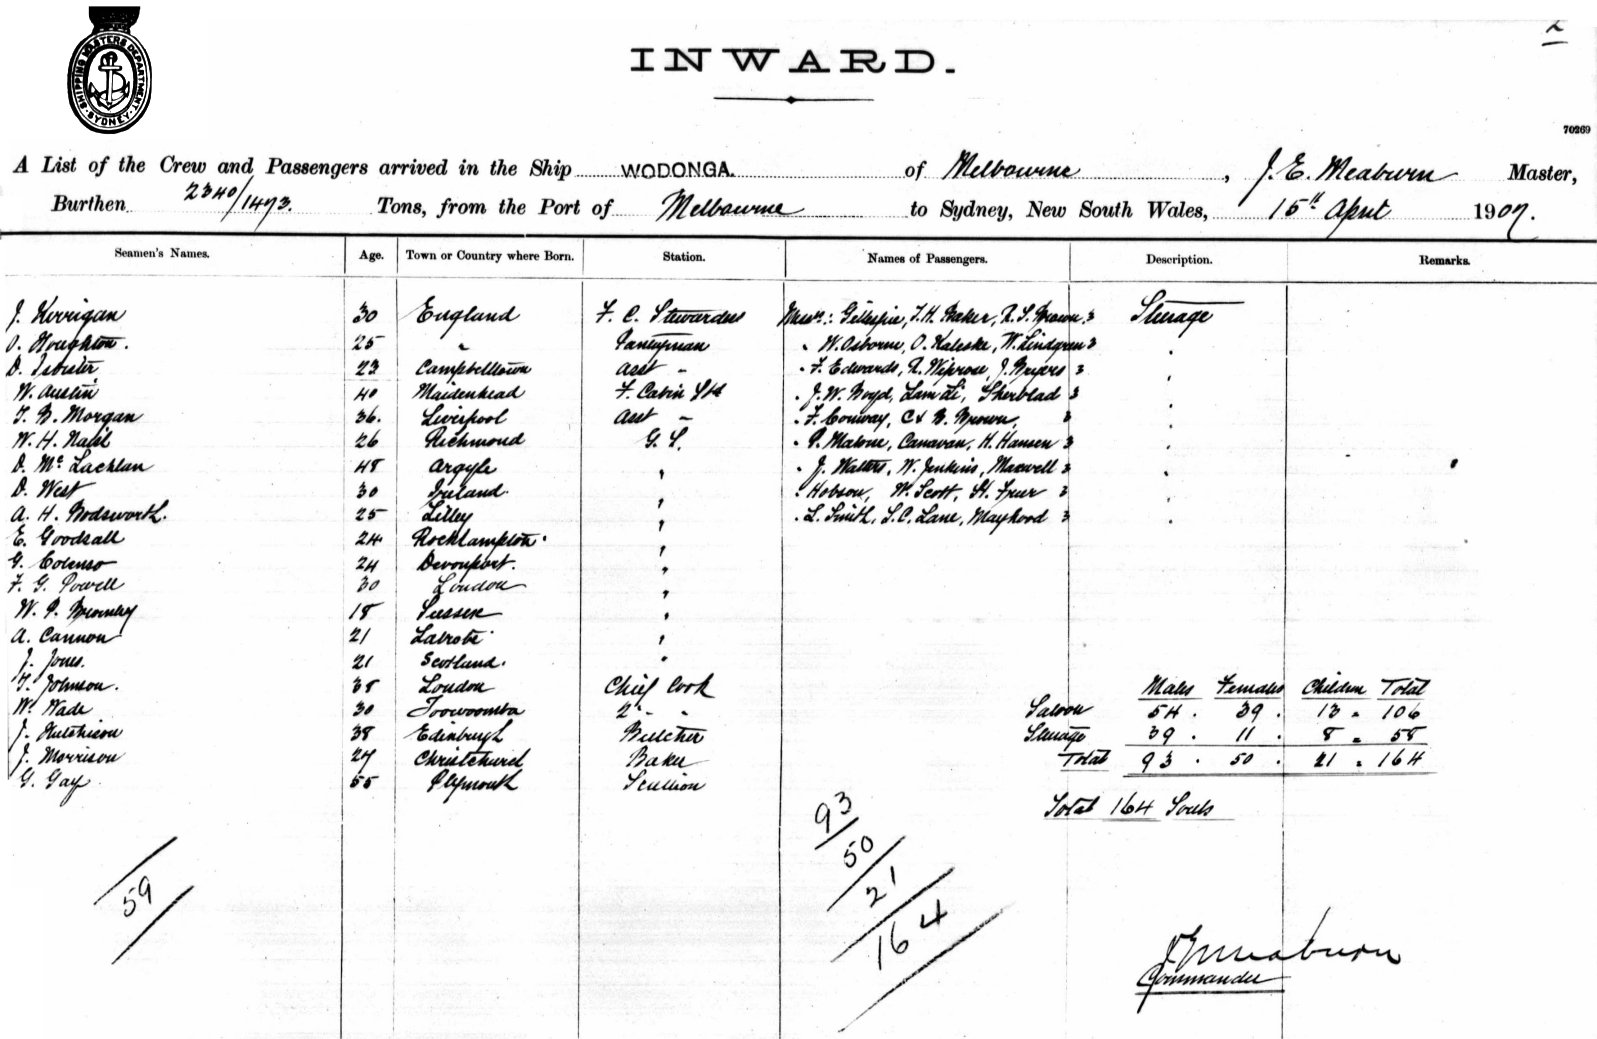 2
SHIPPING MASTERS DEPARTMENT SYDNEY
INWARD.
70269
A List of the Crew and Passengers arrived in the Ship WODONGA. of Melbourne, J. E. Meaburn Master,
Burthen 2340/1473. Tons, from the Port of Melbourne to Sydney, New South Wales, 15th April 1907.
Seamen's Names. Age. Town or Country where Born. Station. Names of Passengers. Description. Remarks.
J. Kerrigan 30 England F. C. Stewardess Messrs: Gillespie, T. H. Baker, R. S. Brown 3 Steerage
O. Houghton. 25 " Pantryman " W. Osborne, O. Kaleske, W. Lindgren 3 "
D. Isbister 23 Campbelltown Asst " " F. Edwards, R. J. 3 "
W. Austin 40 Maidenhead F. Cabin Std " J. W. Boyd, Lam Li, Sherblad 3 "
T. B. Morgan 36. Liverpool Asst " " F. Conway, C & B. Brown, 3 "
W. H. Nash 26 Richmond G. S. " P. Malone, Canavan, H. Hansen 3 "
D. McLachlan 48 Argyle " " J. Walters, W. Jenkins, Maxwell 3 "
D. West 30 Ireland. " " Hobson, W. Scott, H. Freer 3 "
A. H. Bodsworth. 25 Lilley " " L. Smith, S. C. Lane, Mayhood 3 "
E. Goodsall 24 Rockhampton. "
G. Colenso 24 Devonport. "
F. G. Powell 30 London "
W. P. 18 Sussex "
A. Cannon 21 Latrobe "
J. Jones. 21 Scotland. "
T. Johnson. 38 London Chief Cook
W. Wade 30 Toowoomba 2nd "
J. Hutchison 38 Edinburgh Butcher
J. Morrison 27 Christchurch Baker
G. Gay 55 Plymouth Scullion
Males Females Children Total
Saloon 54 . 39 . 13 = 106
Steerage 39 . 11 . 8 = 58
Total 93 . 50 . 21 = 164
Total 164 Souls
59
93
50
21
164
J E Meaburn
Commander